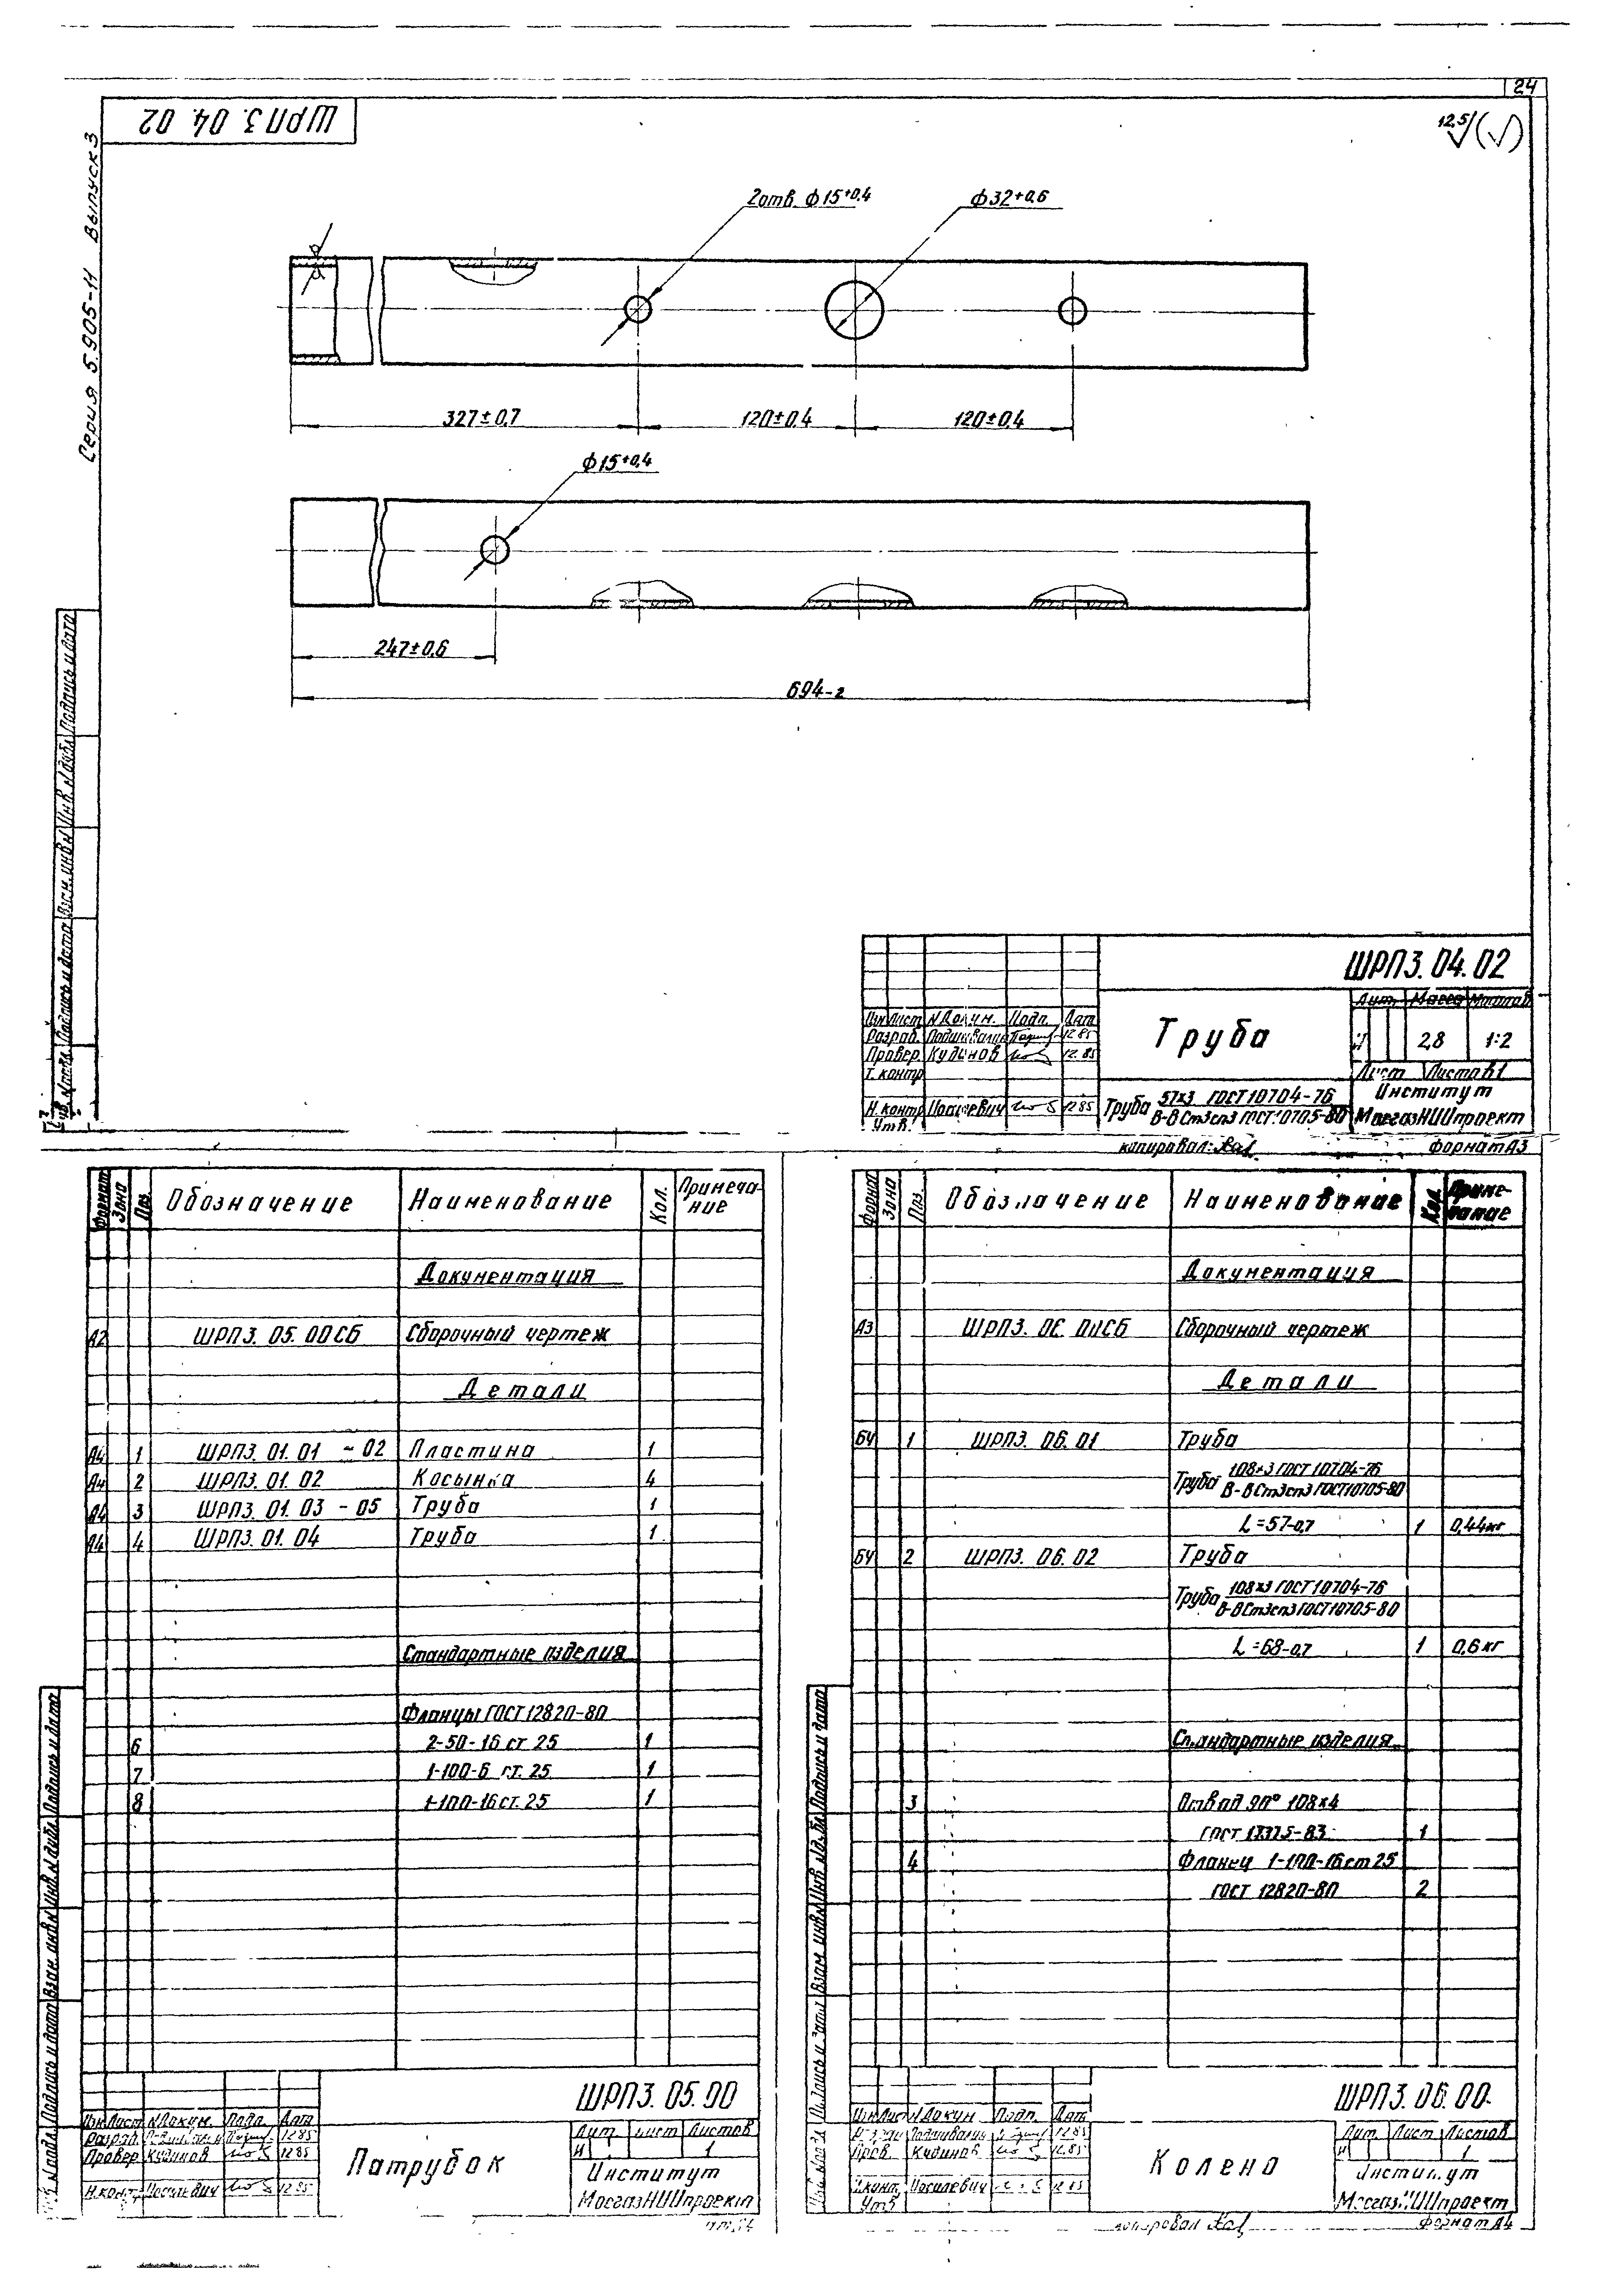 24
ШРПЗ. 04. 02
12,5
Серия 5.905-11 Выпуск 3
2 отв. ф15+0,4
ф32+0,6
327±0,7
120±0,4
120±0,4
ф15+0,4
247±0,6
694-2
Подпись и дата
Инв. № дубл.
Взам. инв. №
Подпись и дата
ШРПЗ. 04. 02
Лит. Масса Масштаб
Изм Лист № Докум. Подп. Дата
Разраб. 12.85
Провер. Кудинов 12.85
Т. контр
Н. контр 12.85
Утв.
Труба
И 2,8 1:2
Лист Листов 1
Труба 57х3 ГОСТ 10704-76
В-В Ст3сп3 ГОСТ 10705-80
Институт
МосгазНИИпроект
копировал:
формат А3
Формат Зона Поз. Обозначение Наименование Кол. Примечание
Документация
А2 ШРПЗ. 05. 00СБ Сборочный чертеж
Детали
А4 1 ШРПЗ. 01. 01 - 02 Пластина 1
А4 2 ШРПЗ. 01. 02 Косынка 4
А4 3 ШРПЗ. 01. 03 - 05 Труба 1
А4 4 ШРПЗ. 01. 04 Труба 1
Стандартные изделия
Фланцы ГОСТ 12820-80
6 2-50-16 ст. 25 1
7 1-100-6 ст. 25 1
8 1-100-16 ст. 25 1
Подпись и дата
Инв. № дубл.
Взам. инв. №
Подпись и дата
ШРПЗ. 05. 00
Изм Лист № Докум. Подп. Дата
Разраб. 12.85
Провер Кудинов 12.85
Н. контр. 12.85
Патрубок
Лит. Лист Листов
И 1
Институт
МосгазНИИпроект
Формат Зона Поз. Обозначение Наименование Кол. Примечание
Документация
А3 ШРПЗ. 06. 00СБ Сборочный чертеж
Детали
БЧ 1 ШРПЗ. 06. 01 Труба
Труба 108х3 ГОСТ 10704-76
В-В Ст3сп3 ГОСТ 10705-80
L=57-0,7 1 0,44кг
БЧ 2 ШРПЗ. 06. 02 Труба
Труба 108х3 ГОСТ 10704-76
В-В Ст3сп3 ГОСТ 10705-80
L=68-0,7 1 0,6 кг
Стандартные изделия
3 Отвод 90° 108х4
ГОСТ 17375-83 1
4 Фланец 1-100-16 ст 25
ГОСТ 12820-80 2
Подпись и дата
Взам. инв. №
ШРПЗ. 06. 00
Изм Лист № Докум Подп. Дата
12.85
Пров. Кудинов 12.85
Н. конт. 12.85
Утв
Колено
Лит. Лист Листов
И 1
Институт
МосгазНИИпроект
копировал
формат А4